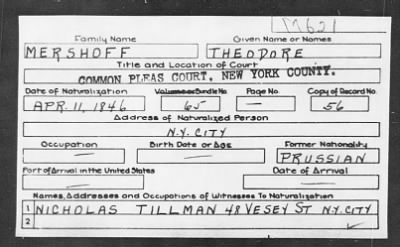 17621
Family Name Given Name or Names
MERSHOFF THEODORE
Title and Location of Court
COMMON PLEAS COURT, NEW YORK COUNTY.
Date of Naturalization Volume or Bundle No. Page No. Copy of Record No.
APR. 11, 1846 65 — 56
Address of Naturalized Person
N.Y. CITY
Occupation Birth Date or Age Former Nationality
— — PRUSSIAN
Port of Arrival in the United States Date of Arrival
— —
Names, Addresses and Occupations of Witnesses To Naturalization
1 NICHOLAS TILLMAN 48 VESEY ST N.Y. CITY
2